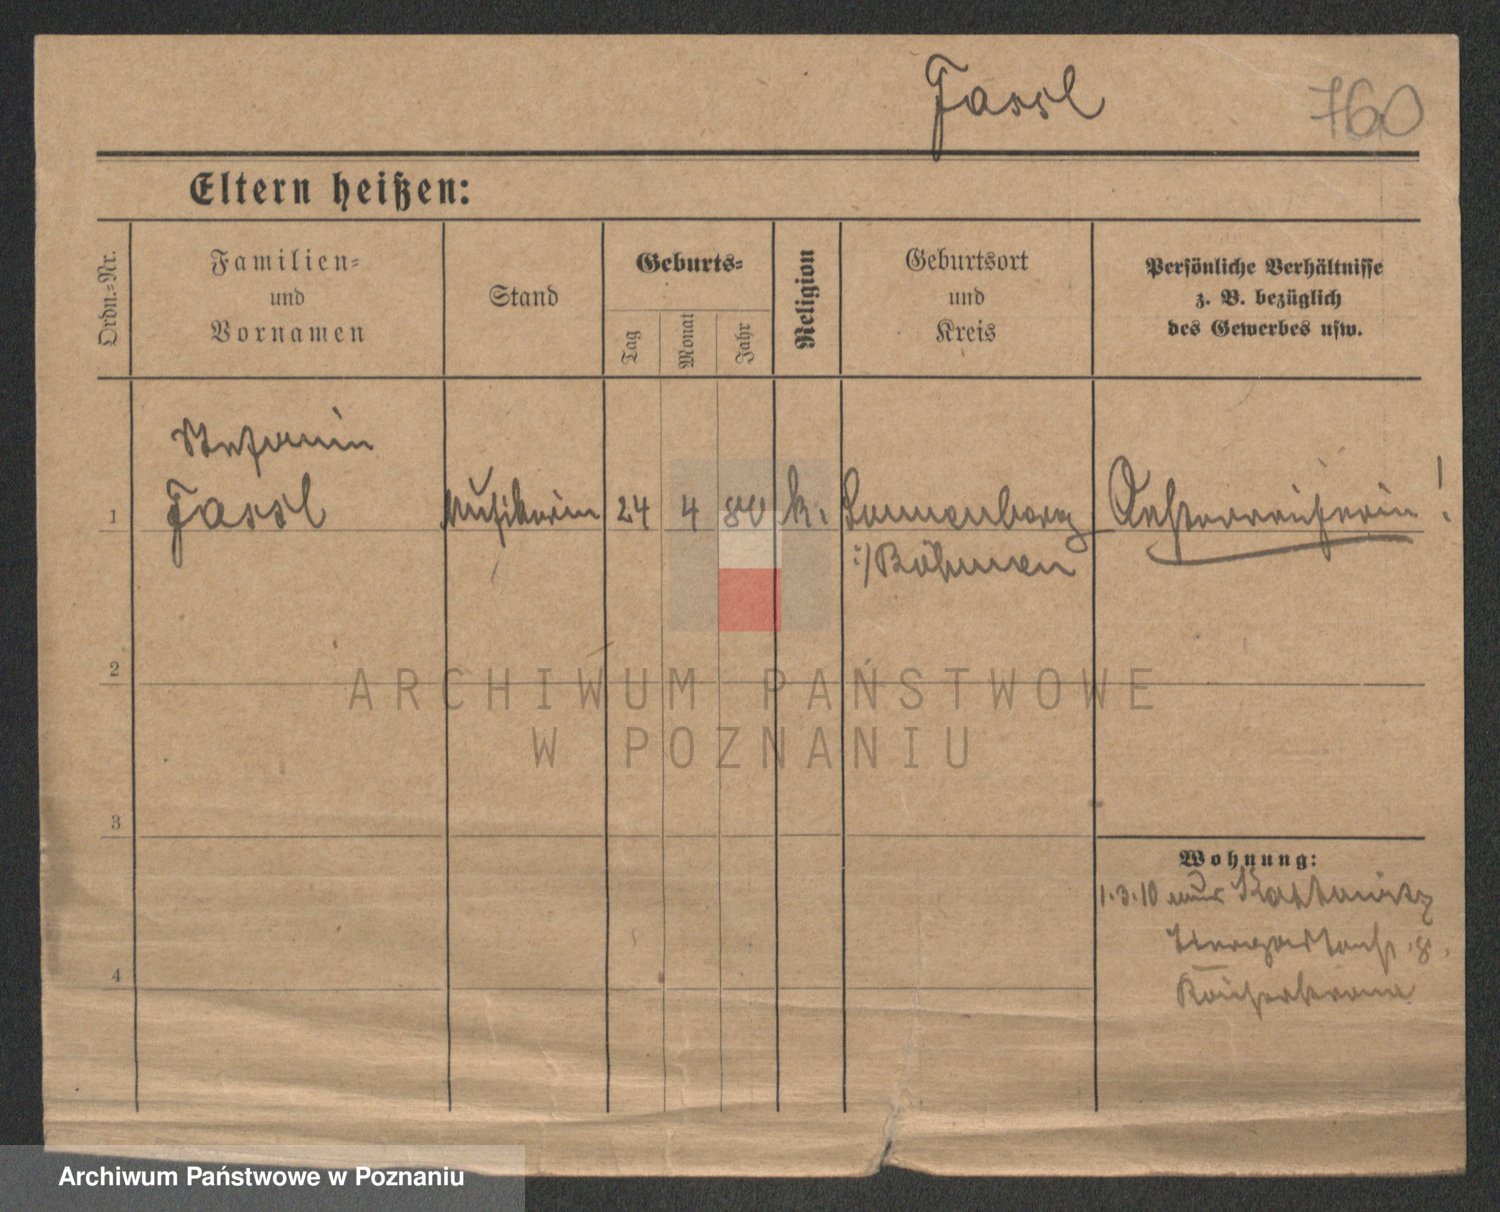 Fassl
760
Eltern heißen:
Ordn.-Nr.
Familien-
und
Vornamen
Stand
Geburts-
Tag
Monat
Jahr
Religion
Geburtsort
und
Kreis
Persönliche Verhältnisse
z. B. bezüglich
des Gewerbes usw.
1
Stefanie
Fassl
Musikerin
24
4
80
k.
Sonnenberg
i/Böhmen
Oesterreicherin!
2
3
4
Wohnung:
1.3.10 Kattowitz
8.
Kaiserkrone
ARCHIWUM PAŃSTWOWE
W POZNANIU
Archiwum Państwowe w Poznaniu